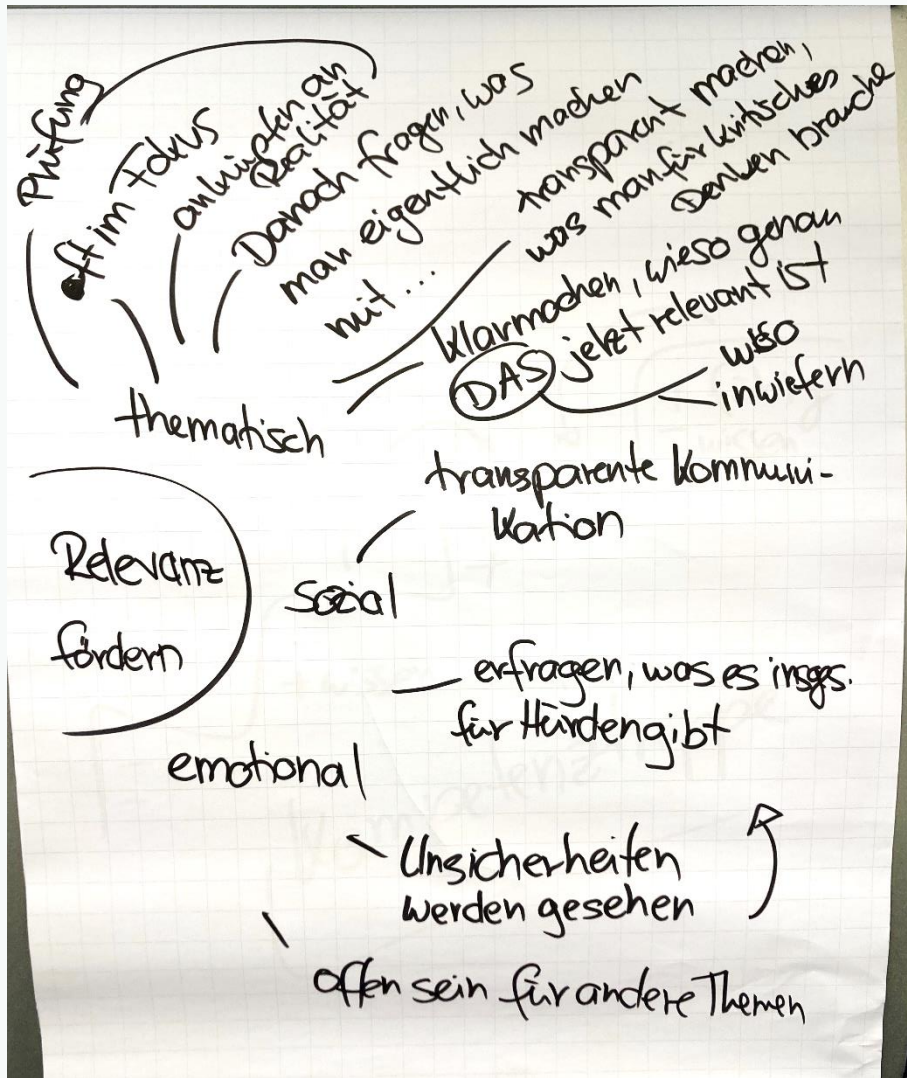 Prüfung
oft im Fokus
anknüpfen an
Realität
Danach fragen, was
man eigentlich machen
mit ...
transparent machen,
was man für kritisches
Denken brauche
klarmachen, wieso genau
DAS jetzt relevant ist
wieso
inwiefern
thematisch
transparente Kommuni-
kation
Relevanz
fördern
sozial
erfragen, was es insgs.
für Hürden gibt
emotional
Unsicherheiten
werden gesehen
offen sein für andere Themen